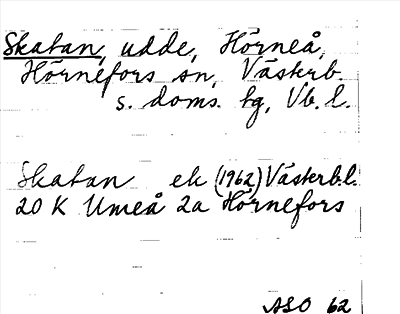 Skatan, udde, Hörneå,
Hörnefors sn, Västerb.
s. doms. tg, Vb. l.
Skatan ek (1962) Västerb.l.
20 K Umeå 2a Hörnefors
ASO 62